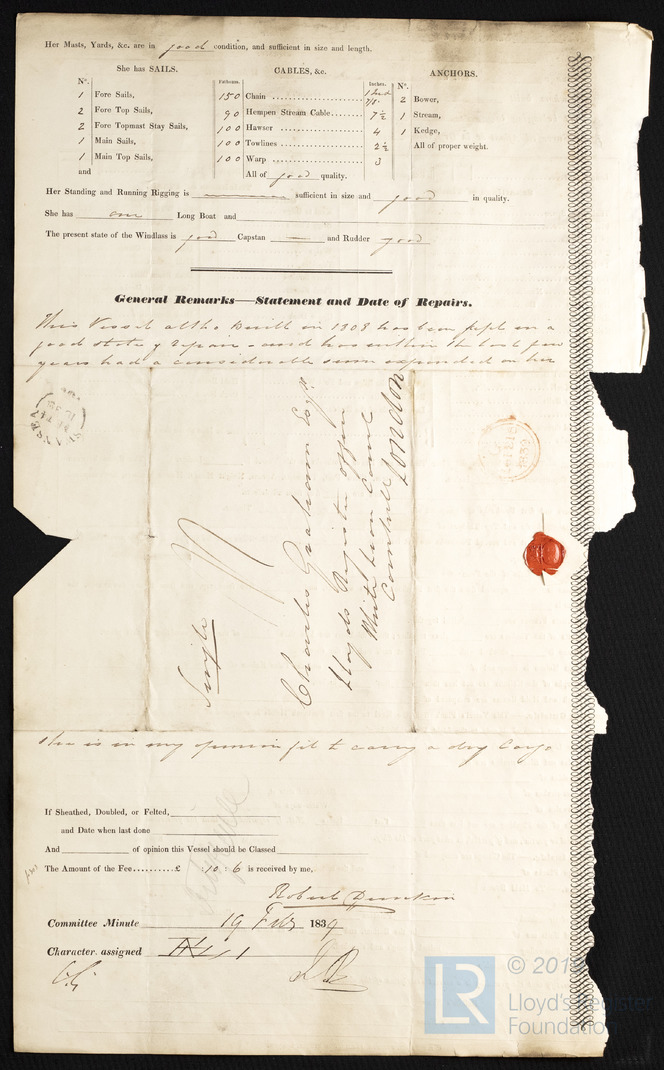 Her Masts, Yards, &c. are in good condition, and sufficient in size and length.
She has SAILS.
CABLES, &c.
ANCHORS.
N°.
Fathoms.
Inches.
N°.
1 Fore Sails,
2 Fore Top Sails,
2 Fore Topmast Stay Sails,
1 Main Sails,
1 Main Top Sails,
and
150 Chain 1 7/8
90 Hempen Stream Cable 7 ½
100 Hawser 4
100 Towlines 2 ½
100 Warp 3
All of good quality.
2 Bower,
1 Stream,
1 Kedge,
All of proper weight.
Her Standing and Running Rigging is sufficient in size and good in quality.
She has one Long Boat and
The present state of the Windlass is good Capstan — and Rudder good
General Remarks—Statement and Date of Repairs.
This Vessel altho Built in 1808 has been kept in a
good state of repair and has within the last few
years had a considerable sum expended on her
SWANSEA
1839
Single
Charles Graham Esqr
Lloyds Register office
White Lion Court
Cornhill
London
She is in my opinion fit to carry a dry Cargo
If Sheathed, Doubled, or Felted,
and Date when last done
And of opinion this Vessel should be Classed
The Amount of the Fee..........£ : 10 : 6 is received by me,
Robert Dunkin
Committee Minute 19 Feby 1839
Character assigned 1
© 2019
LR
Lloyd's Register
Foundation